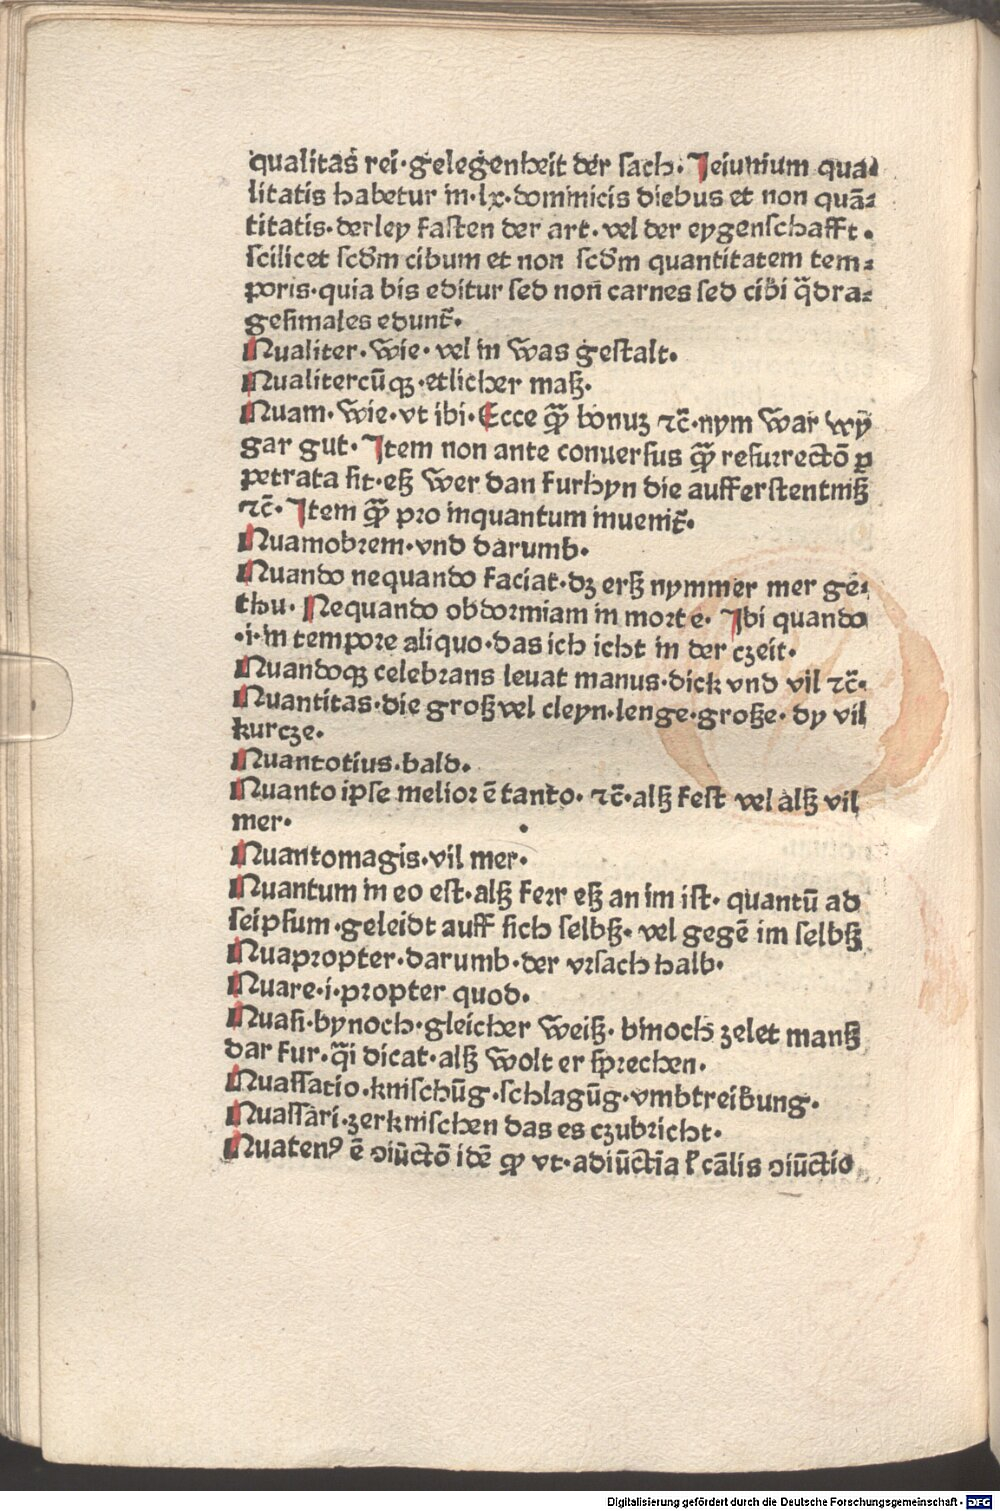 qualitas rei·gelegenheit der sach·Jeiunium qua⸗
litatis habetur in·lx·dominicis diebus et non quā⸗
titatis·derley fasten der art·vel der eygenschafft·
scilicet scd̄m cibum et non scd̄m quantitatem tem⸗
poris·quia bis editur sed non carnes sed cibi q̄dra⸗
gesimales edunt̄·
Qualiter·wie·vel in was gestalt·
Qualitercūqꝫ·etlicher maß·
Quam·wie·vt ibi·Ecce qꝫ̄ bonuꝫ ⁊c̄·nym war wÿ
gar gut·Item non ante conuersus qꝫ̄ resurrectō ꝑ
petrata sit·eß wer dan furhyn die aufferstentniß
⁊c̄·Item qꝫ̄ pro inquantum inuenit̄·
Quamobꝛem·vnd darumb·
Quando nequando faciat·dꝫ erß nymmer mer ge⸗
thu·Nequando obdoꝛmiam in moꝛte·Ibi quando
·i·in tempoꝛe aliquo·das ich icht in der czeit·
Quandoqꝫ celebꝛans leuat manus·dick vnd vil ⁊c̄·
Quantitas·die groß vel cleyn·lenge·große·dy vil
kurcze·
Quantotius·bald·
Quanto ipse melioꝛ ē tanto·⁊c̄·alß fest vel alß vil
mer·
Quantomagis·vil mer·
Quantum in eo est·alß ferr eß an im ist·quantū ad
seipsum·geleidt auff sich selbß·vel gegē im selbß
Quapꝛopter·darumb·der vꝛsach halb·
Quare·i·pꝛopter quod·
Quasi·bynoch·gleicher weiß·binoch zelet manß
dar fur·q̄i dicat·alß wolt er sprechen·
Quassatio·knischūg·schlagūg·vmbtreibung·
Quassari·zerknischen das es czubꝛicht·
Quatenꝰ ē ↄiūctō idē qꝫ̄ vt·adiūctīa ł cālis ↄiūctio
Digitalisierung gefördert durch die Deutsche Forschungsgemeinschaft · DFG